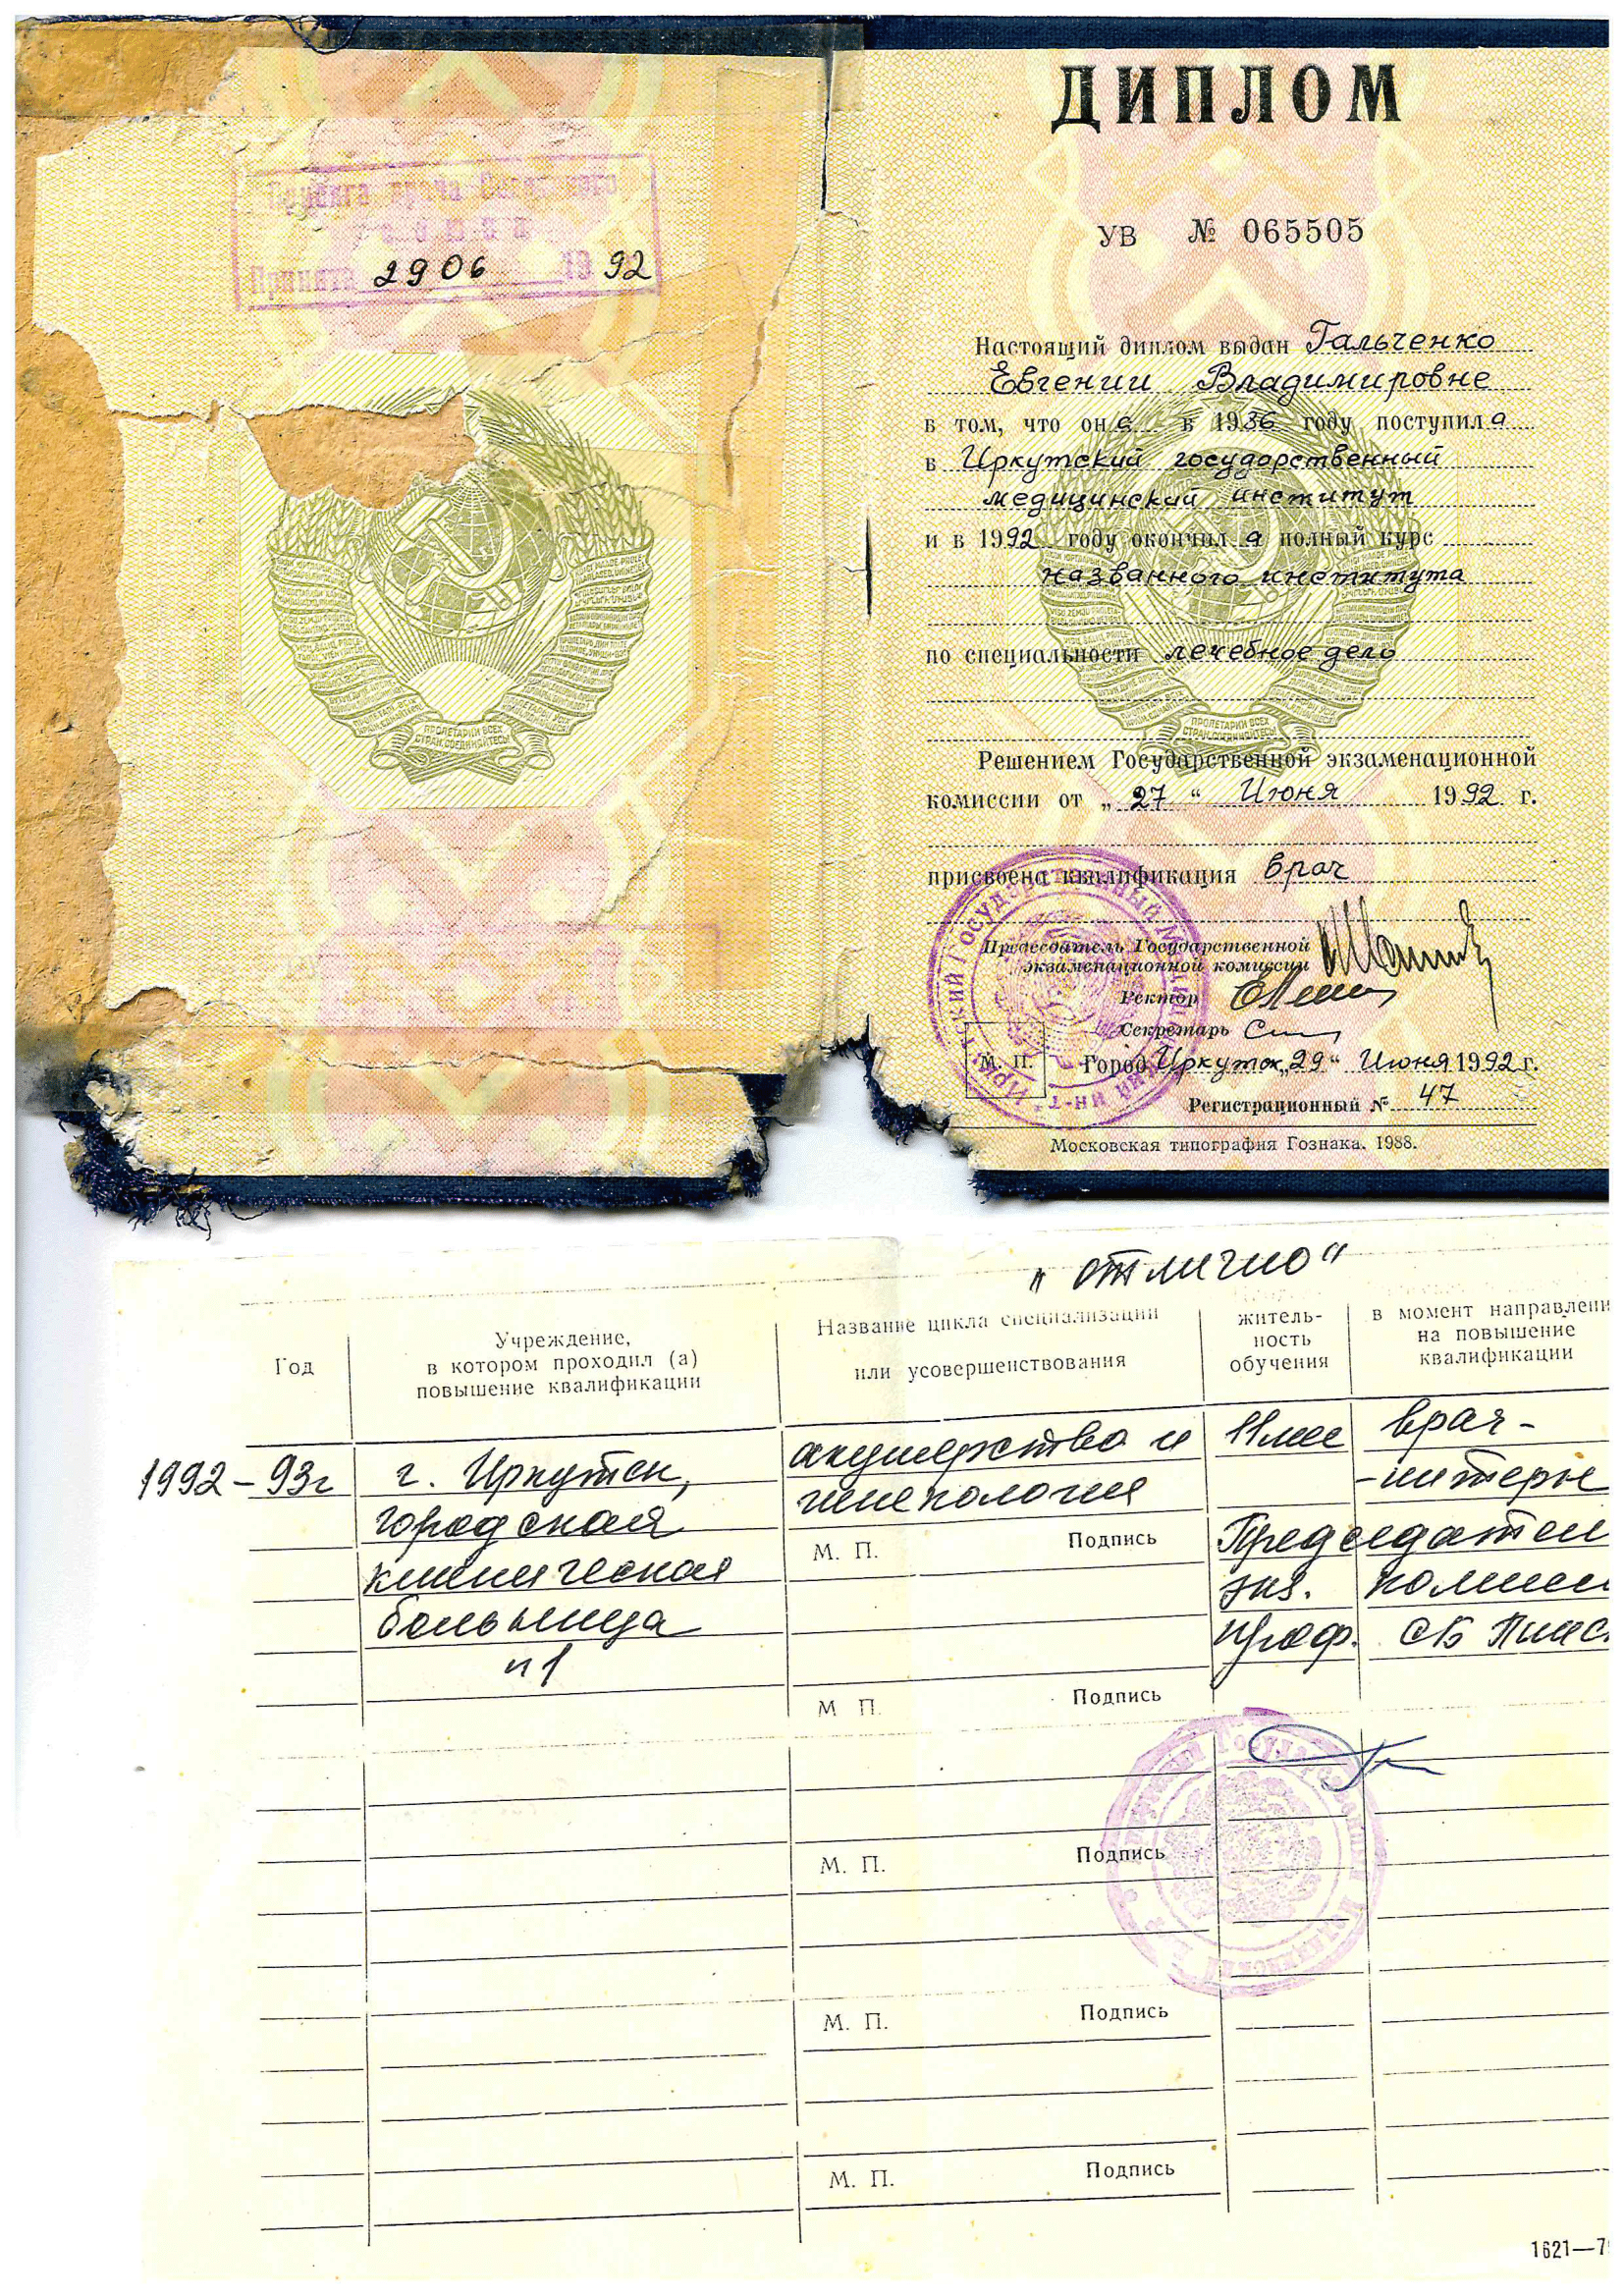 Присяга врача Советского
Союза
Принята 29 06 1992
ПРОЛЕТАРИИ ВСЕХ
СТРАН, СОЕДИНЯЙТЕСЬ!
ДИПЛОМ
УВ № 065505
Настоящий диплом выдан Гальченко
Евгении Владимировне
в том, что она в 1986 году поступила
в Иркутский государственный
медицинский институт
и в 1992 году окончила полный курс
названного института
по специальности лечебное дело
ПРОЛЕТАРИИ ВСЕХ
СТРАН, СОЕДИНЯЙТЕСЬ!
Решением Государственной экзаменационной
комиссии от „27“ Июня 1992 г.
присвоена квалификация врач
Председатель Государственной
экзаменационной комиссии
Ректор
Секретарь
М. П. Город Иркутск „29“ Июня 1992 г.
Регистрационный № 47
Московская типография Гознака. 1988.
„отлично“
Год
Учреждение,
в котором проходил (а)
повышение квалификации
Название цикла специализации
или усовершенствования
житель-
ность
обучения
в момент направлени
на повышение
квалификации
1992-93г
г. Иркутск,
городская
клиническая
больница
н1
акушерство и
гинекология
11мес
врач-
-интерн
М. П. Подпись
Председател
экз. комисси
проф.
М П. Подпись
М. П. Подпись
М. П. Подпись
М. П. Подпись
1621—7